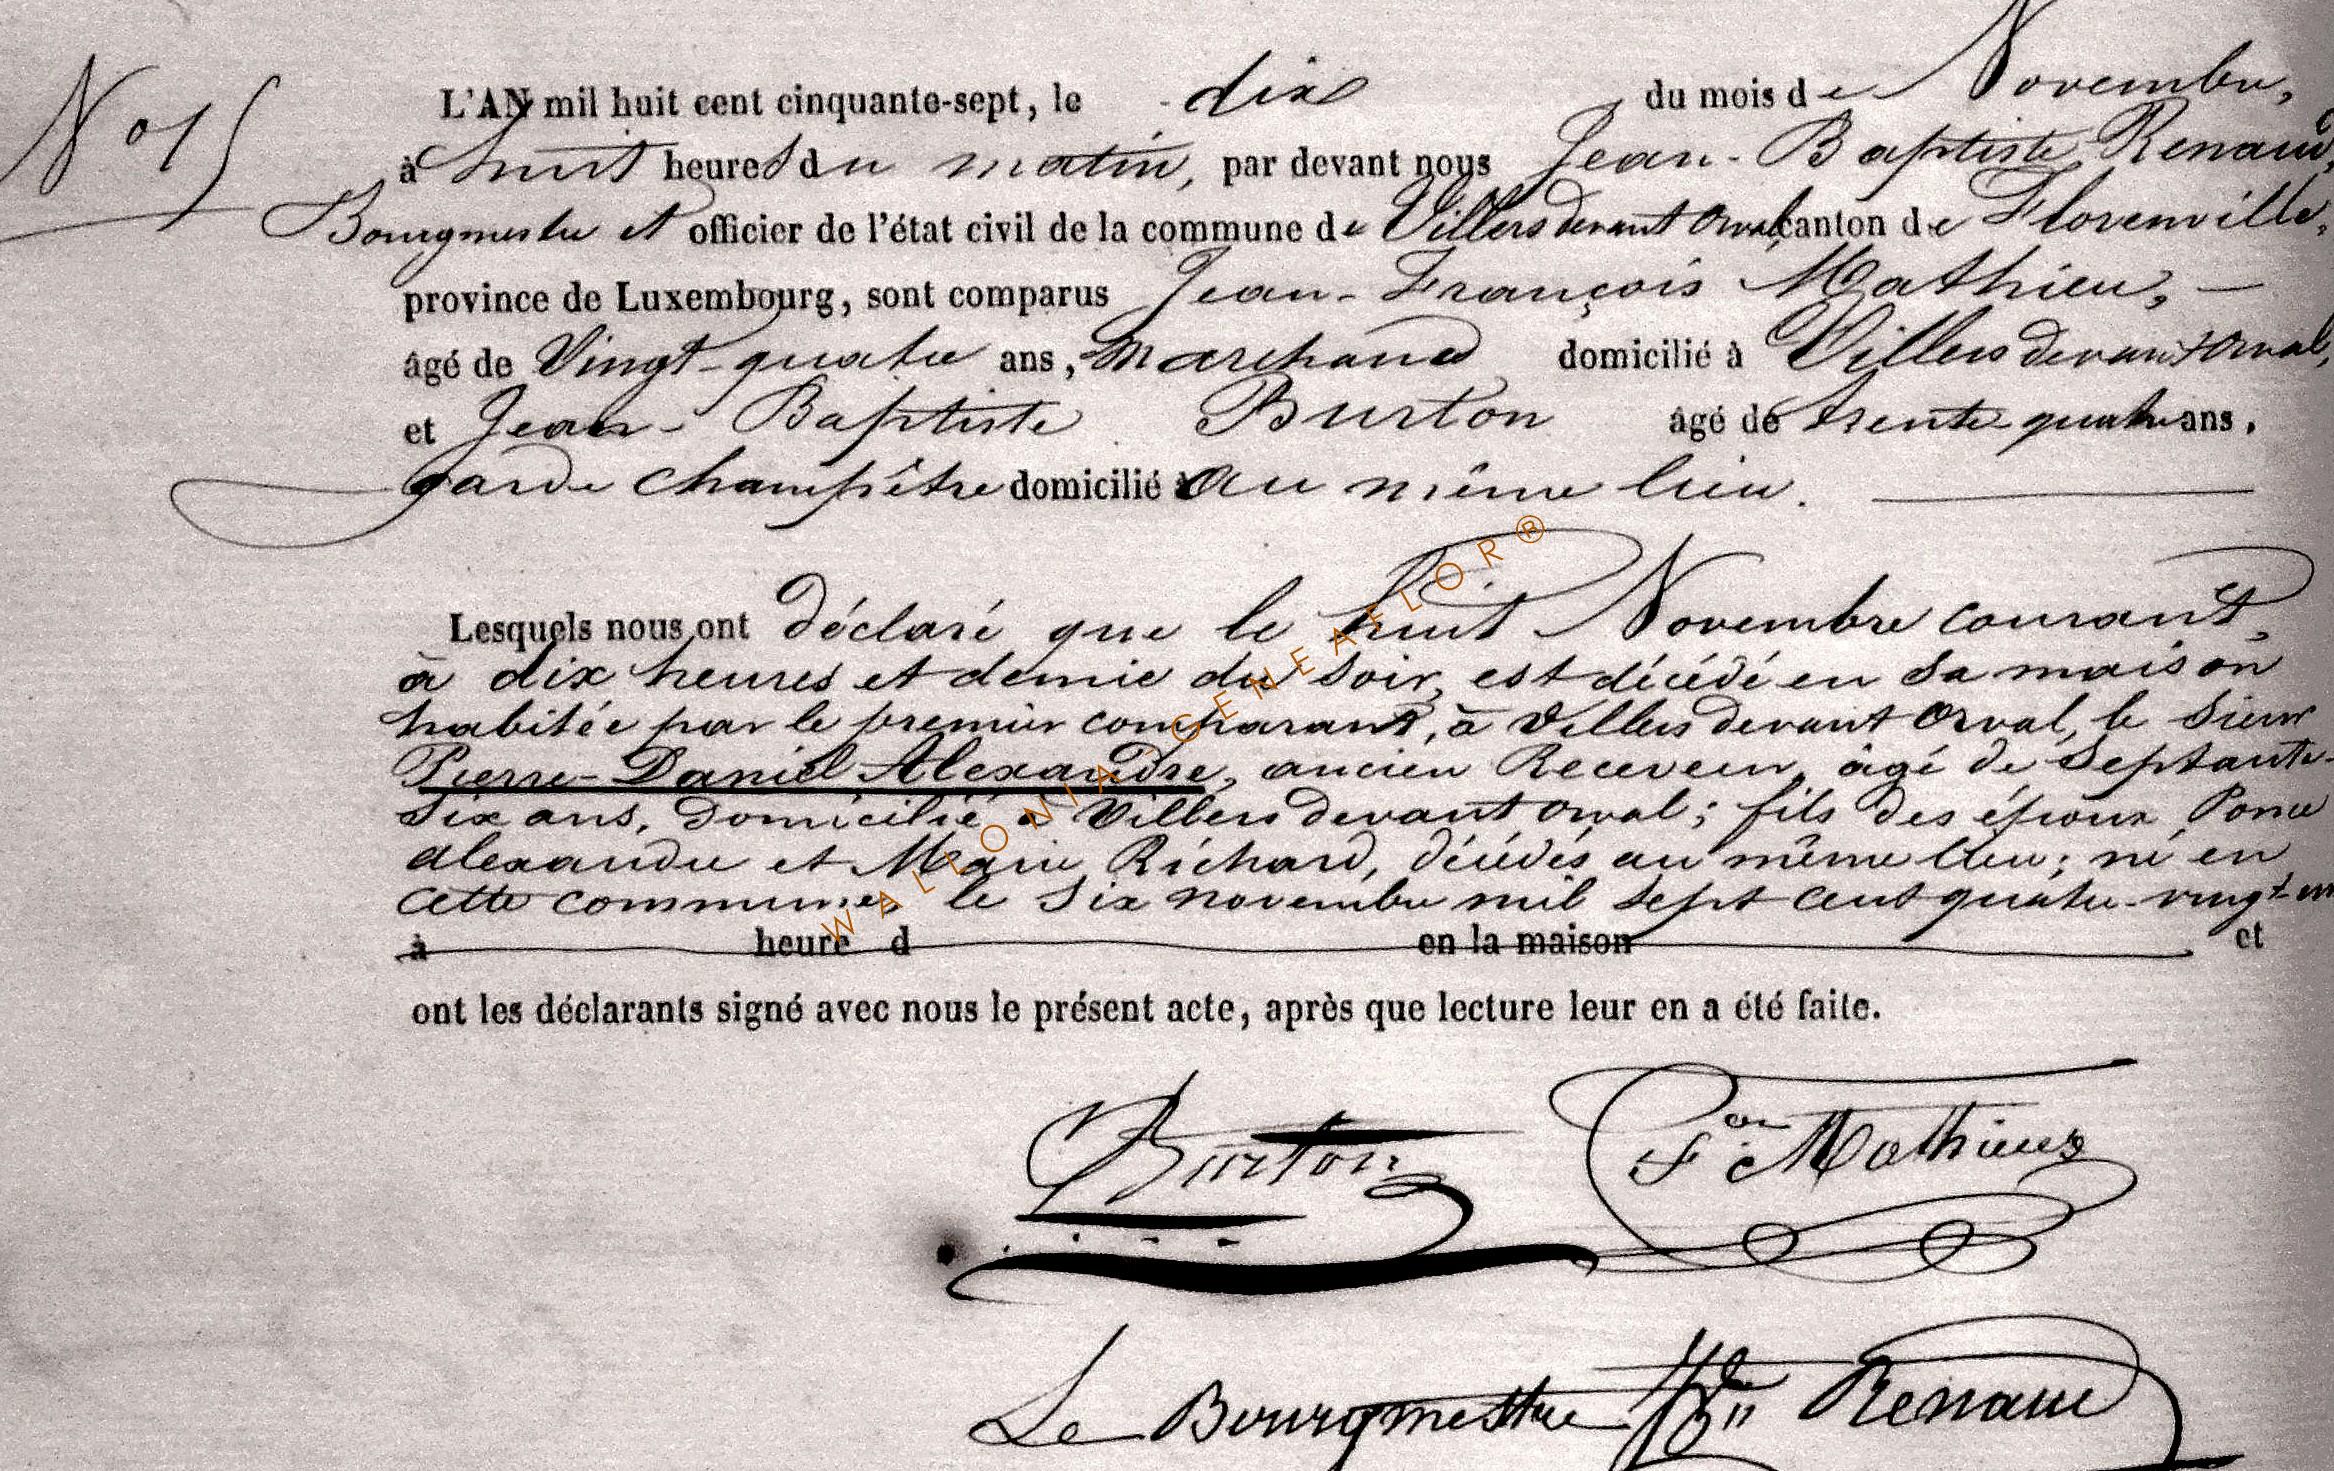 N° 15
L'AN mil huit cent cinquante-sept, le dix du mois de Novembre,
à huit heures du matin, par devant nous Jean-Baptiste Renaud,
Bourgmestre et officier de l'état civil de la commune de Villers devant Orval, canton de Florenville,
province de Luxembourg, sont comparus Jean-François Mathieu,
âgé de Vingt-quatre ans, Marchand domicilié à Villers devant Orval,
et Jean-Baptiste Burton âgé de trente-quatre ans,
garde champêtre domicilié au même lieu.
Lesquels nous ont déclaré que le huit Novembre courant,
à dix heures et demie du soir, est décédé en sa maison
habitée par le premier comparant, à Villers devant Orval, le Sieur
Pierre-Daniel Alexandre, ancien Receveur, âgé de Septante-
Six ans, Domicilié à Villers devant Orval; fils des époux Ponce
Alexandre et Marie Richard, décédés au même lieu; né en
cette commune, le Six novembre mil sept cent quatre-vingt-un
à heure d en la maison et
ont les déclarants signé avec nous le présent acte, après que lecture leur en a été faite.
Burton Fçois Mathieu
Le Bourgmestre JBte Renaud
WALLONIA GENEAFLOR®